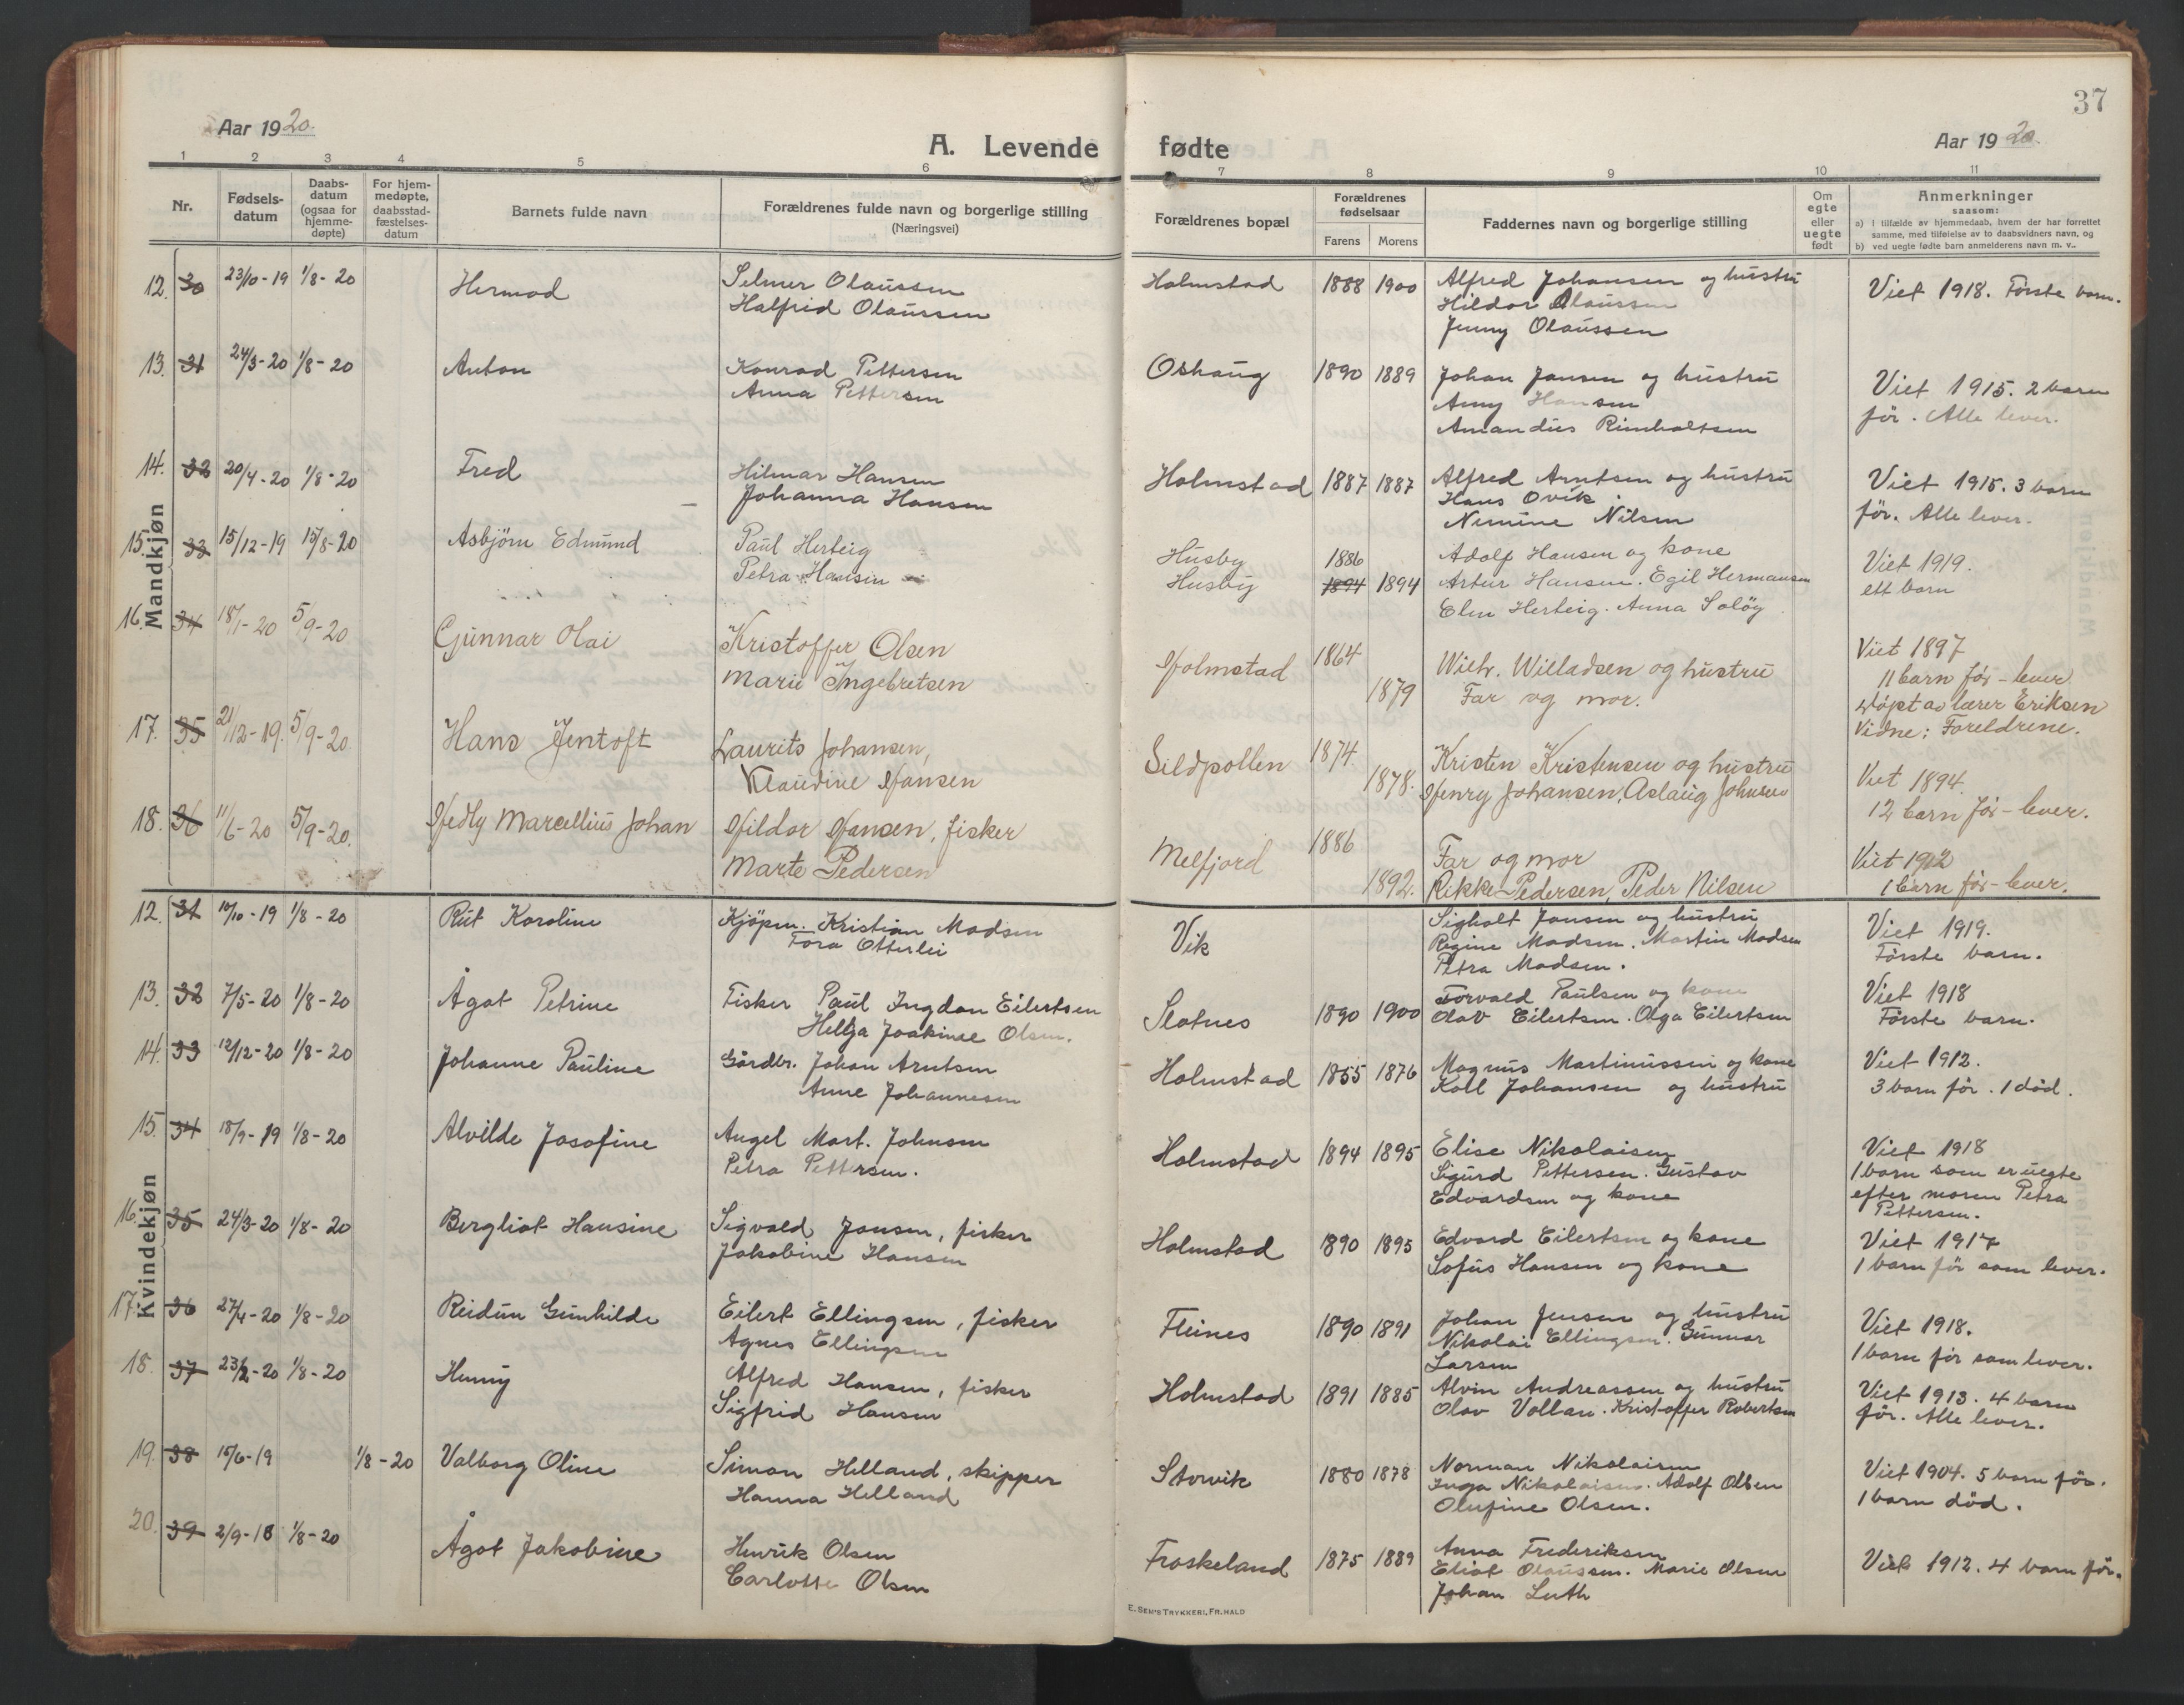 37
Aar 1920.
A. Levende fødte
Aar 1920.
1 2 3 4 5 6 7 8 9 10 11
Nr.
Fødsels-
datum
Daabs-
datum
(ogsaa for
hjemme-
døpte)
For hjem-
medøpte,
daabsstad-
fæstelses-
datum
Barnets fulde navn
Forældrenes fulde navn og borgerlige stilling
(Næringsvei)
Forældrenes bopæl
Forældrenes
fødselsaar
Farens Morens
Faddernes navn og borgerlige stilling
Om
egte
eller
uegte
født
Anmerkninger
saasom:
a) I tilfælde av hjemmedaab, hvem der har forrettet
samme, med tilføielse av to daabsvidners navn, og
b) ved uegte fødte barn anmelderens navn m. v..
Mandkjøn
12. 30 23/10-19 1/8-20 Hermod Selmer Olaussen Holmstad 1888 1900 Alfred Johansen og hustru Viet 1918. Förste barn.
Halfrid Olaussen Hildor Olaussen
Jenny Olaussen
13. 31 24/3-20 1/8-20 Anton Konrad Pettersen Oshaug 1890 1889 Johan Jansen og hustru Viet 1915. 2 barn
Anna Pettersen Amy Hansen för. Alle lever.
Amandus Rimholtsen
14. 32 20/4-20 1/8-20 Fred Hilmar Hansen Holmstad 1887 1887 Alfred Arntsen og hustru Viet 1915. 3 barn
Johanna Hansen Hans Ovik för. Alle lever.
Nimine Nilsen
15. 33 15/12-19 15/8-20 Asbjörn Edmund Paul Herteig Husby 1886 Adolf Hansen og kone Viet 1919.
Petra Hansen Husby 1894 1894 Artur Hansen. Egil Hermansen ett barn
Elen Herteig. Anna Solöy
16. 34 18/1-20 5/9-20 Gunnar Olai Kristoffer Olsen Holmstad 1864 Wilh. Willadsen og hustru Viet 1897
Marie Ingebretsen 1879 Far og mor. 11 barn før - lever
døpt av lærer Eriksen
Vidne: Foreldrene.
17. 35 21/12-19. 5/9-20 Hans Jentoft Laurits Johansen, Sildpollen 1874 Kristen Kristensen og hustru Viet 1894.
Klaudine Hansen 1878. Henry Johansen, Aslaug Johnsen 12 barn før - lever.
18. 36 11/6-20 5/9-20. Hedly Marcellius Johan Hildor Hansen, fisker Melfjord 1886 Far og mor Viet 1912
Marte Pedersen 1892. Rikke Pedersen, Peder Nilsen 1 barn før - lever.
Kvindekjøn
12. 31 10/10-19 1/8-20 Rut Karoline Kjöpm. Kristian Madsen Vik Sigholt Jansen og hustru Viet 1919.
Tora Otterlei Regine Madsen. Martin Madsen Förste barn.
Petra Madsen.
13. 32 7/5-20 1/8-20 Ågot Petrine Fisker Paul Ingdan Eilertsen Slotnes 1890 1900 Torvald Paulsen og kone Viet 1918
Helga Joakine Olsen. Olav Eilertsen. Olga Eilertsen Förste barn.
14. 33 12/12-20 1/8-20 Johanne Pauline Gårdbr. Johan Arntsen Holmstad 1855 1876 Magnus Martinussen og kone Viet 1912.
Anne Johannesen Kall Johansen og hustru 3 barn för. 1 död.
15. 34 18/9-19 1/8-20 Alvilde Josofine Angel Mart. Johnsen Holmstad 1894 1895 Elise Nikolaisen Viet 1918
Petra Pettersen. Sigurd Pettersen. Gustav 1 barn som er uegte
Edvardsen og kone efter moren Petra
Pettersen.
16. 35 24/3-20 1/8-20 Bergliot Hansine Sigvald Jansen, fisker Holmstad 1890 1895 Edvard Eilertsen og kone Viet 1917
Jakobine Hansen Sofus Hansen og kone 1 barn för som lever.
17. 36 27/4-20 1/8-20 Reidun Gunhilde Eilert Ellingsen, fisker Fleines 1890 1891 Johan Jensen og hustru Viet 1918.
Agnes Ellingsen Nikolai Ellingsen. Gunnar 1 barn för som lever.
Larsen
18. 37 23/2-20 1/8-20 Henny Alfred Hansen, fisker Holmstad 1891 1885 Alvin Andreassen og hustru Viet 1913. 4 barn
Sigfrid Hansen Olav Vollan. Kristoffer Robertsen för. Alle lever.
19. 38 15/6-19 1/8-20 Valborg Oline Simon Helland, skipper Storvik 1880 1878 Norman Nikolaisen Viet 1904. 5 barn för.
Hanna Helland Inga Nikolaisen. Adolf Olsen 1 barn död.
Olufine Olsen.
20. 39 2/9-18 1/8-20 Ågot Jakobine Henrik Olsen Froskeland 1875 1889 Anna Frederiksen Viet 1912. 4 barn för.
Carlotte Olsen Eliot Olaussen. Marie Olsen
Johan Luth
E. SEM'S TRYKKERI, FR.HALD